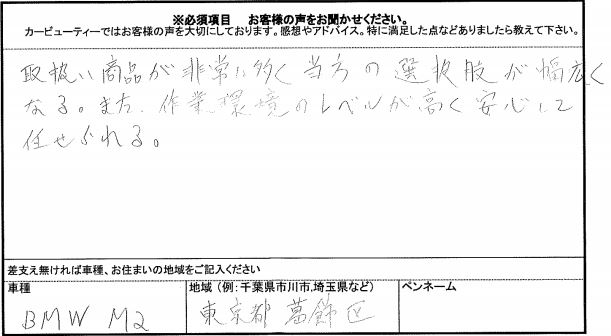 ※必須項目　お客様の声をお聞かせください。
カービューティーではお客様の声を大切にしております。感想やアドバイス。特に満足した点などありましたら教えて下さい。
取扱い商品が非常に多く当方の選択肢が幅広く
なる。また、作業環境のレベルが高く安心して
任せられる。
差支え無ければ車種、お住まいの地域をご記入ください
車種
地域（例：千葉県市川市,埼玉県など）
ペンネーム
BMW M2
東京都 葛飾区